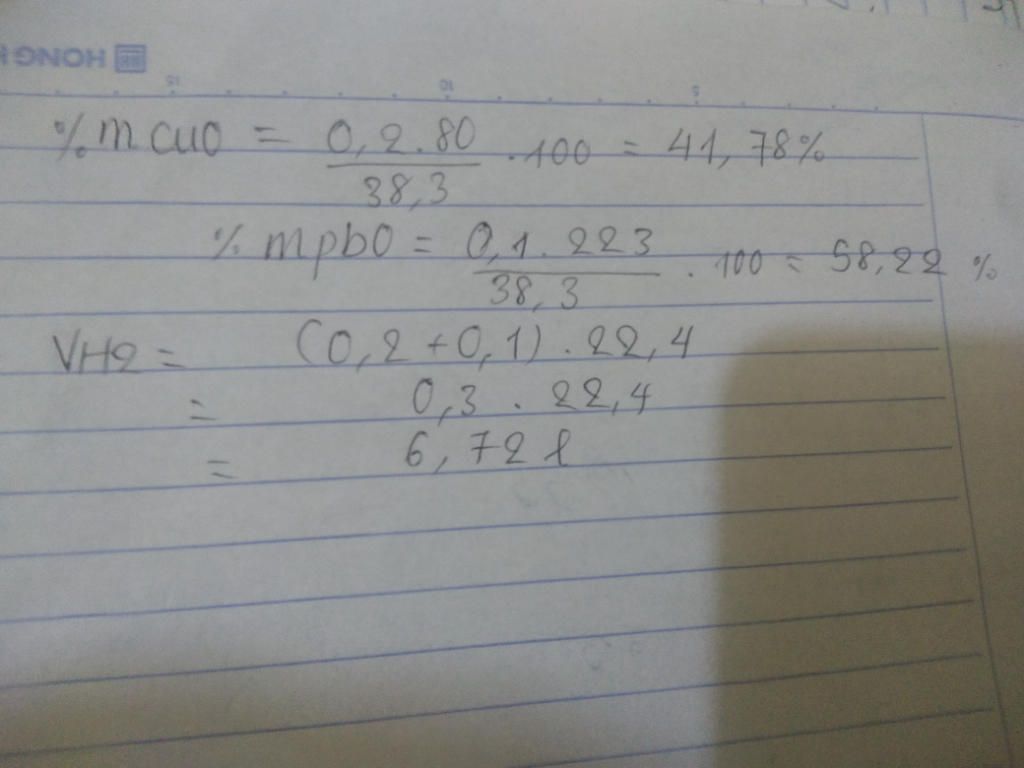 HONG
15 10 5
%m CuO = 0,2.80 / 38,3 .100 = 41,78%
% mpbO = 0,1.223 / 38,3 . 100 = 58,22 %
VH2 = (0,2+0,1).22,4
= 0,3 . 22,4
= 6,72 l